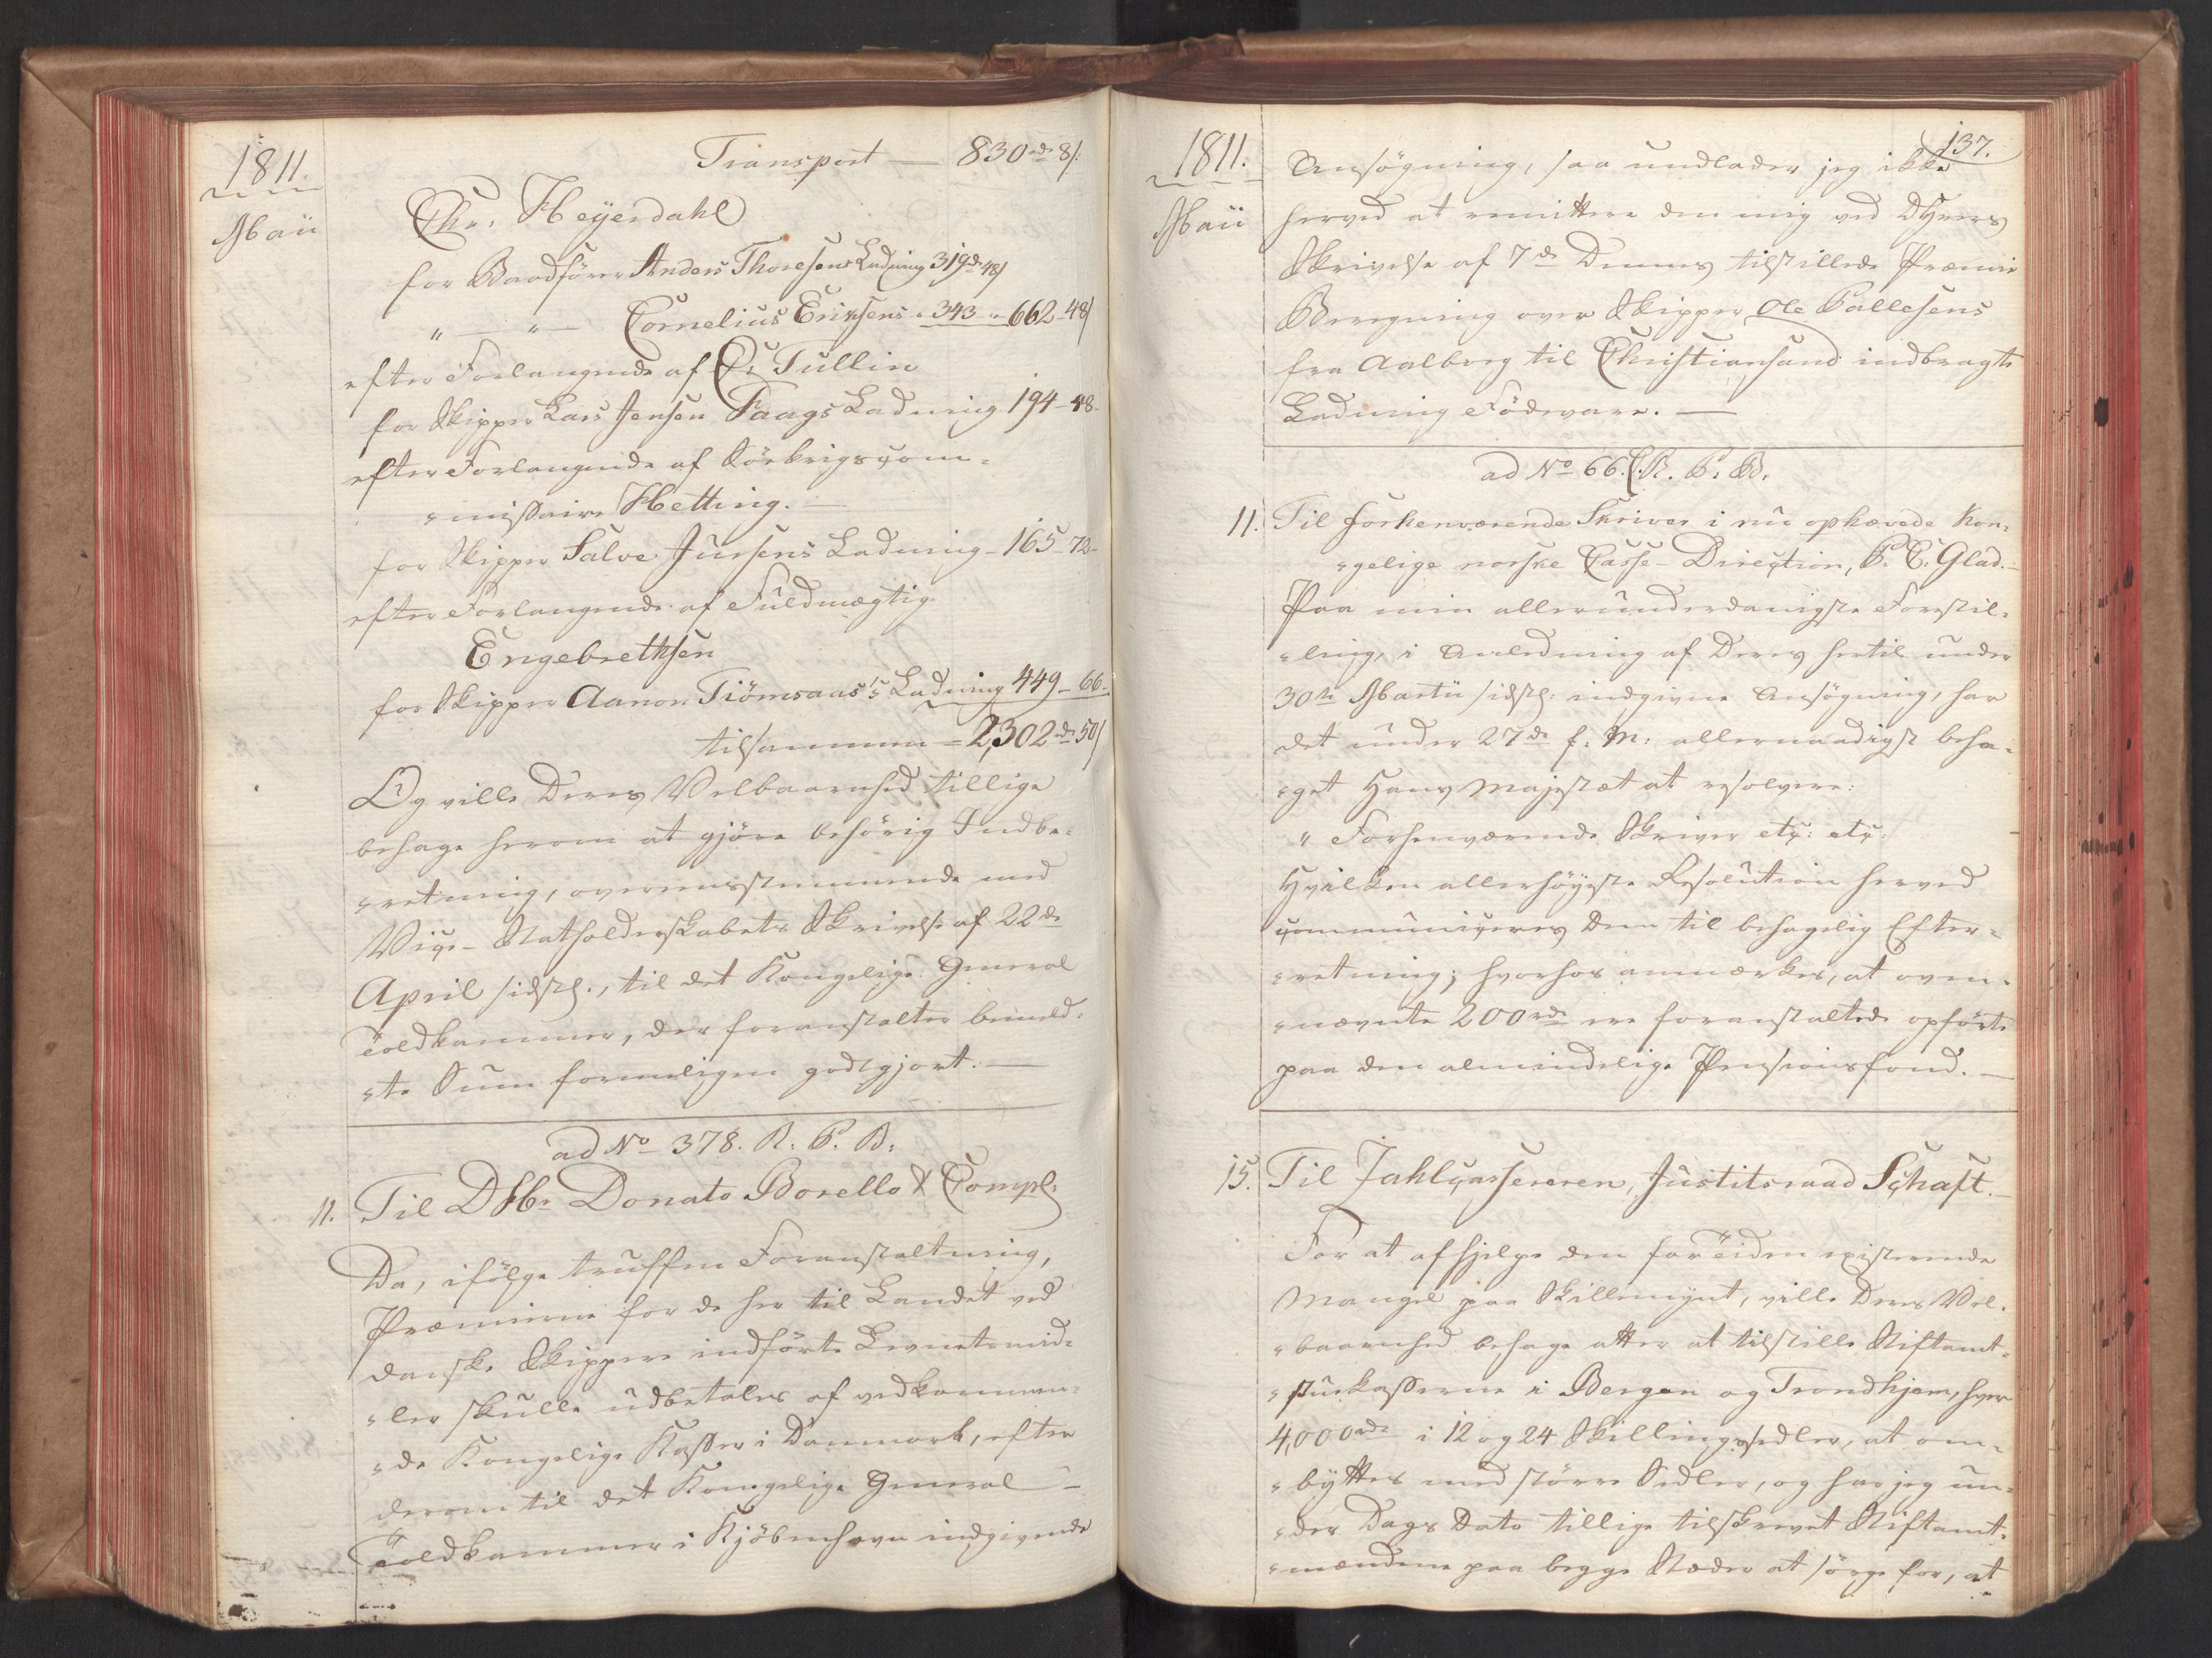 1811.
Maii
Transport — 830 rd 8/:
Chr. Heyerdahl
for Baadfører Anders Thoresens Ladning 319 rd 48/
" — " — Cornelius Eriksens " 343 " — 662 - 48/
efter Forlangende af C: Tullin
for Skipper Lars Jensen Faags Ladning 194 - 48 -
efter Forlangende af Söekrigscom-
missaire Hetting. —
for Skipper Salve Jursens Ladning - 165 - 72 -
efter Forlangende af Fuldmægtig
Engebrethsen
for Skipper Aanon Tiömsaas's Ladning 449 - 66 -
tilsammen = 2,302 rd 50/
Og ville Deres Velbaarenhed tillige
behage herom at gjöre behörig Indbe-
retning, overeensstemmende med
Vice-Statholderskabets Skrivelse af 22de
April sidstl., til det Kongelige General
Toldkammer, der foranstalter bemeld-
te Sum formeligen godtgjort. —
ad No 378. R. P. B:
11. Til DHr. Donato Borello & Compl:
Da, ifölge truffen Foranstaltning,
Præmierne for de her til Landet ved
danske Skippere indförte Levnetsmid-
ler skulle udbetales af vedkommen-
de Kongelige Kasser i Danmark, efter
derom til det Kongelige General-
Toldkammer i Kjöbenhavn indgivende
137.
1811.
Maii
Ansögning, saa undlader jeg ikke
herved at remittere den mig ved DHrrs
Skrivelse af 7de Dennes tilstillede Præmie
Beregning over Skipper Ole Pallesens
fra Aalborg til Christiansand indbragte
Ladning Födevare. —
ad No 66. C. R. P. B.
11. Til forhenværende Skriver i nu ophævede Kon-
gelige norske Casse-Direction, P. C. Glad. —
Paa min allerunderdanigste Forestil-
ling, i Anledning af Deres hertil under
30te Martii sidstl: indgivne Ansögning, har
det under 27de f. M: allernaadigst beha-
get Hans Majestæt at resolvere:
" Forhenværende Skriver etc: etc:
Hvilken allerhöyeste Resolution herved
communiceres Dem til behagelig Efter-
retning; hvorhos anmærkes, at oven-
nævnte 200 rd ere foranstaltede opförte
paa den almindelige Pensionsfond. —
15. Til Zahlcassereren, Justitsraad Schaft. —
For at afhjelpe den for Tiden existerende
Mangel paa Skillemynt, ville Deres Vel-
baarenhed behage atter at tilstille Stiftamt-
stuekasserne i Bergen og Trondhjem, hver
4,000 rd i 12 og 24 Skillingssedler, at om-
byttes med större Sedler, og har jeg un-
der Dags Dato tillige tilskrevet Stiftamt-
mændene paa begge Stæder at sörge for, at